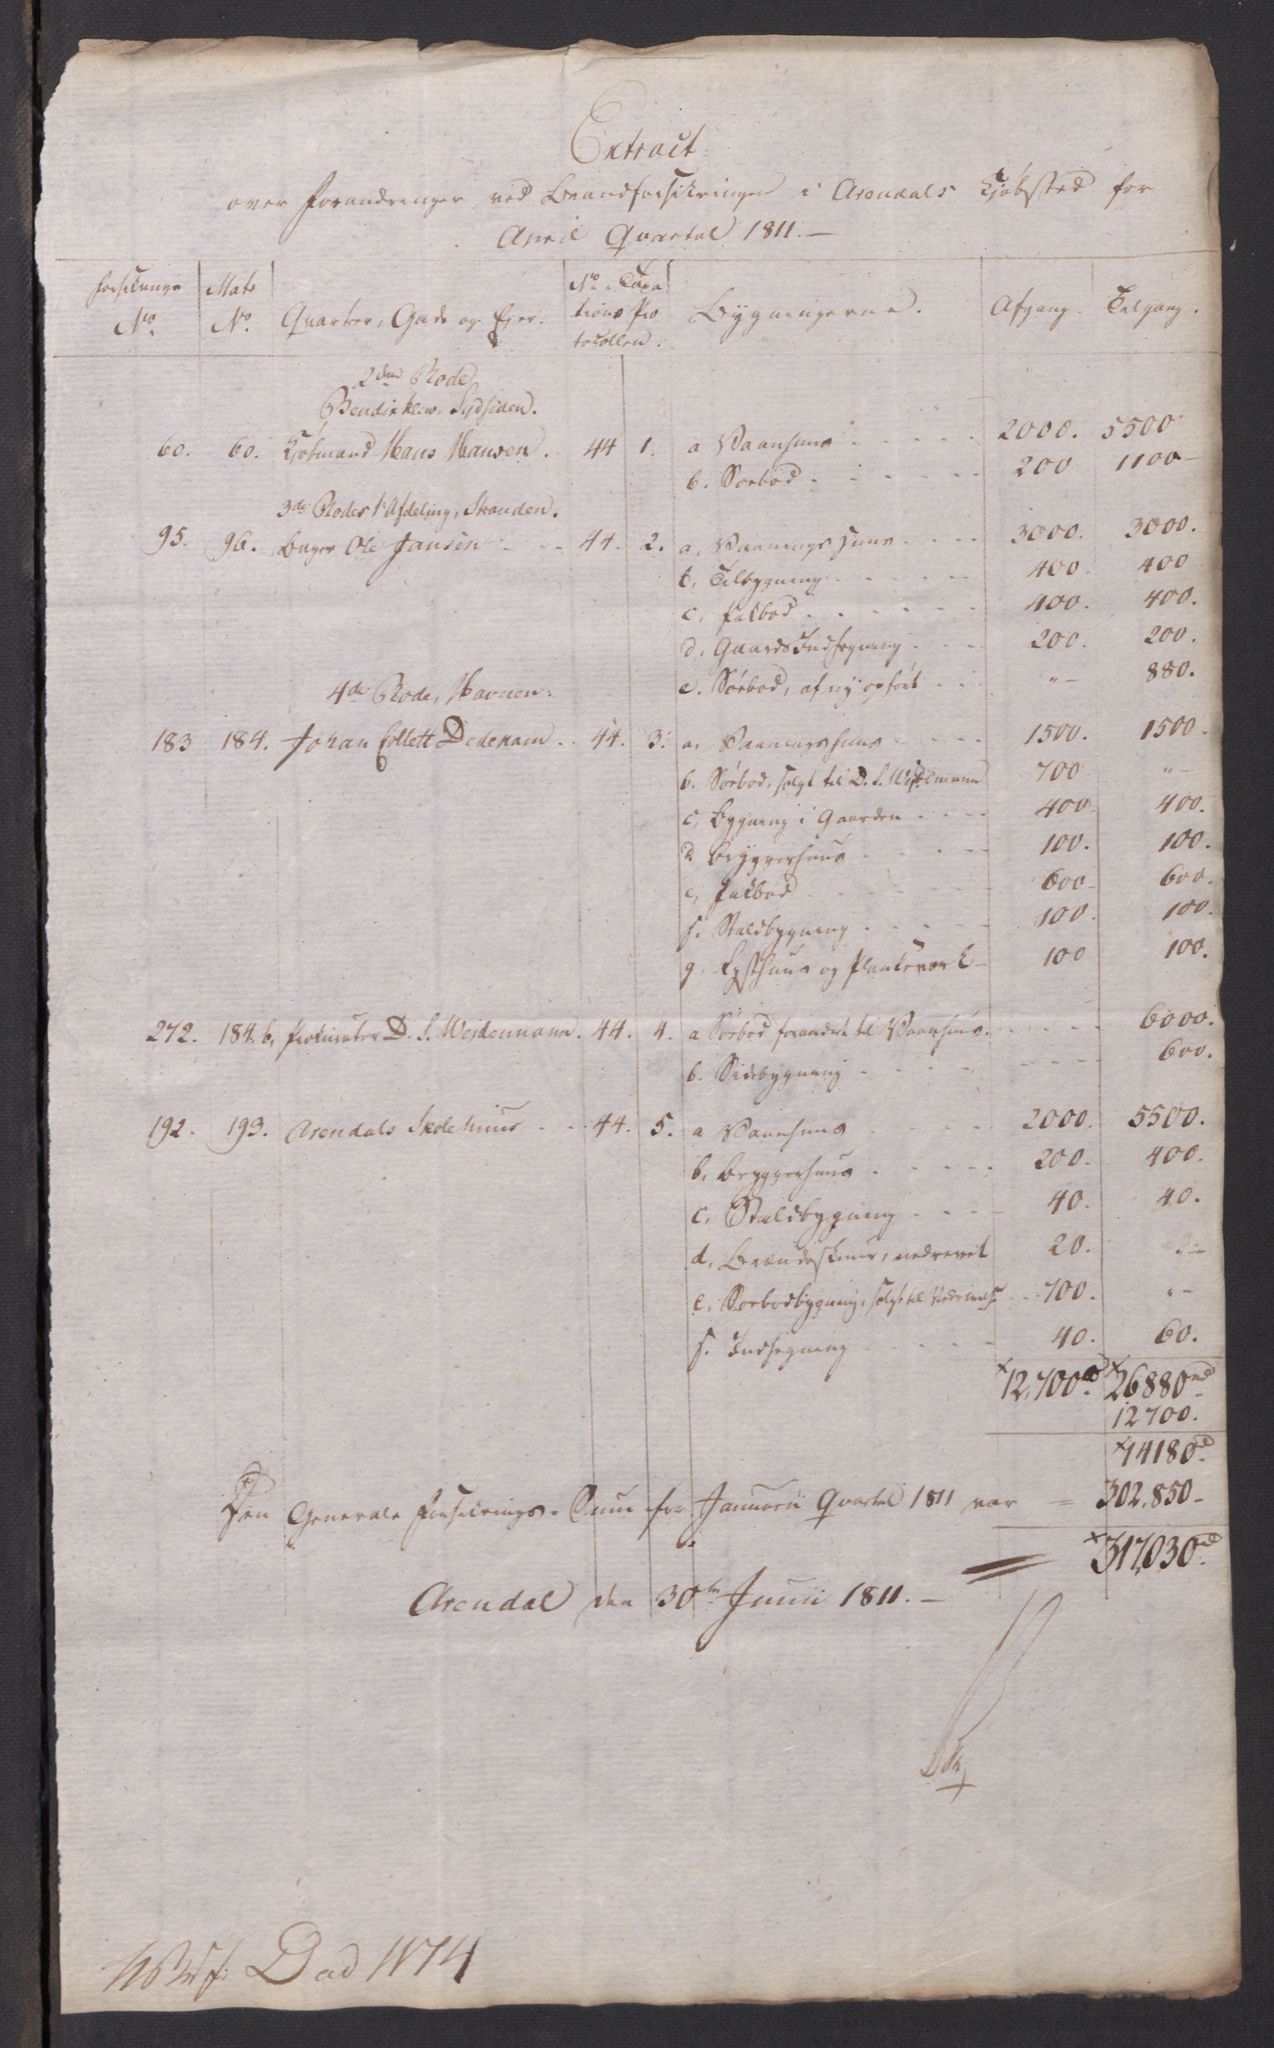 Extract
over Forandringer ved Brandforsikringen i Arendals Kjøbsted for
April Qvartal 1811.
Forsikrings No. | Matr No. | Qvarter, Gade og Ejer. | No. i Taxations Protocollen. | Bygningerne. | Afgang. | Tilgang.
2den Rode
Bendiksklev, Sydsiden.
60. 60. Kjøbmand Hans Hansen. 44 1. a Vaanhuus 2000. 5500
b. Søebod 200 1100
3die Rodes 1 Afdeling, Stranden.
95. 96. Bager Ole Jansen 44. 2. a, Vaanings Huus 3000. 3000.
b, Tilbygning 400. 400
c, Pakbod 400. 400.
d, Gaards Indhegning 200. 200.
e. Søebod, af ny opført " 880.
4de Rode, Havnen.
183 184. Johan Collett Dedekam 44. 3. a, Vaaningshuus 1500. 1500.
b. Søebod, solgt til D. S. Weidemann 700 "
c, Bygning i Gaarden 400 400.
d Bryggerhuus 100. 100.
e, Pakbod 600 600.
f. Staldbygning 100. 100.
g. Lysthuus og Plankeverk 100 100.
272. 184.b, Prokurator D. S. Weidemann. 44. 4. a Søebod forandret til Vaanhuus. 6000.
b. Sidebygning 600.
192. 193. Arendals Skolehuus 44. 5. a Vaanhuus 2000. 5500.
b, Bryggerhuus 200. 400.
c, Staldbygning 40. 40.
d, Brændeskuur, nedrevet 20. "
e, Søebodbygning, solgt til 700. "
f. Indhegning 40. 60.
12,700 rd 26880 rd
12700.
14180 rd
Den Generale Forsikrings-Sum for Januarii Qvartal 1811 var = 302,850
317,030 rd
Arendal den 30te Junii 1811.
Dad 1174